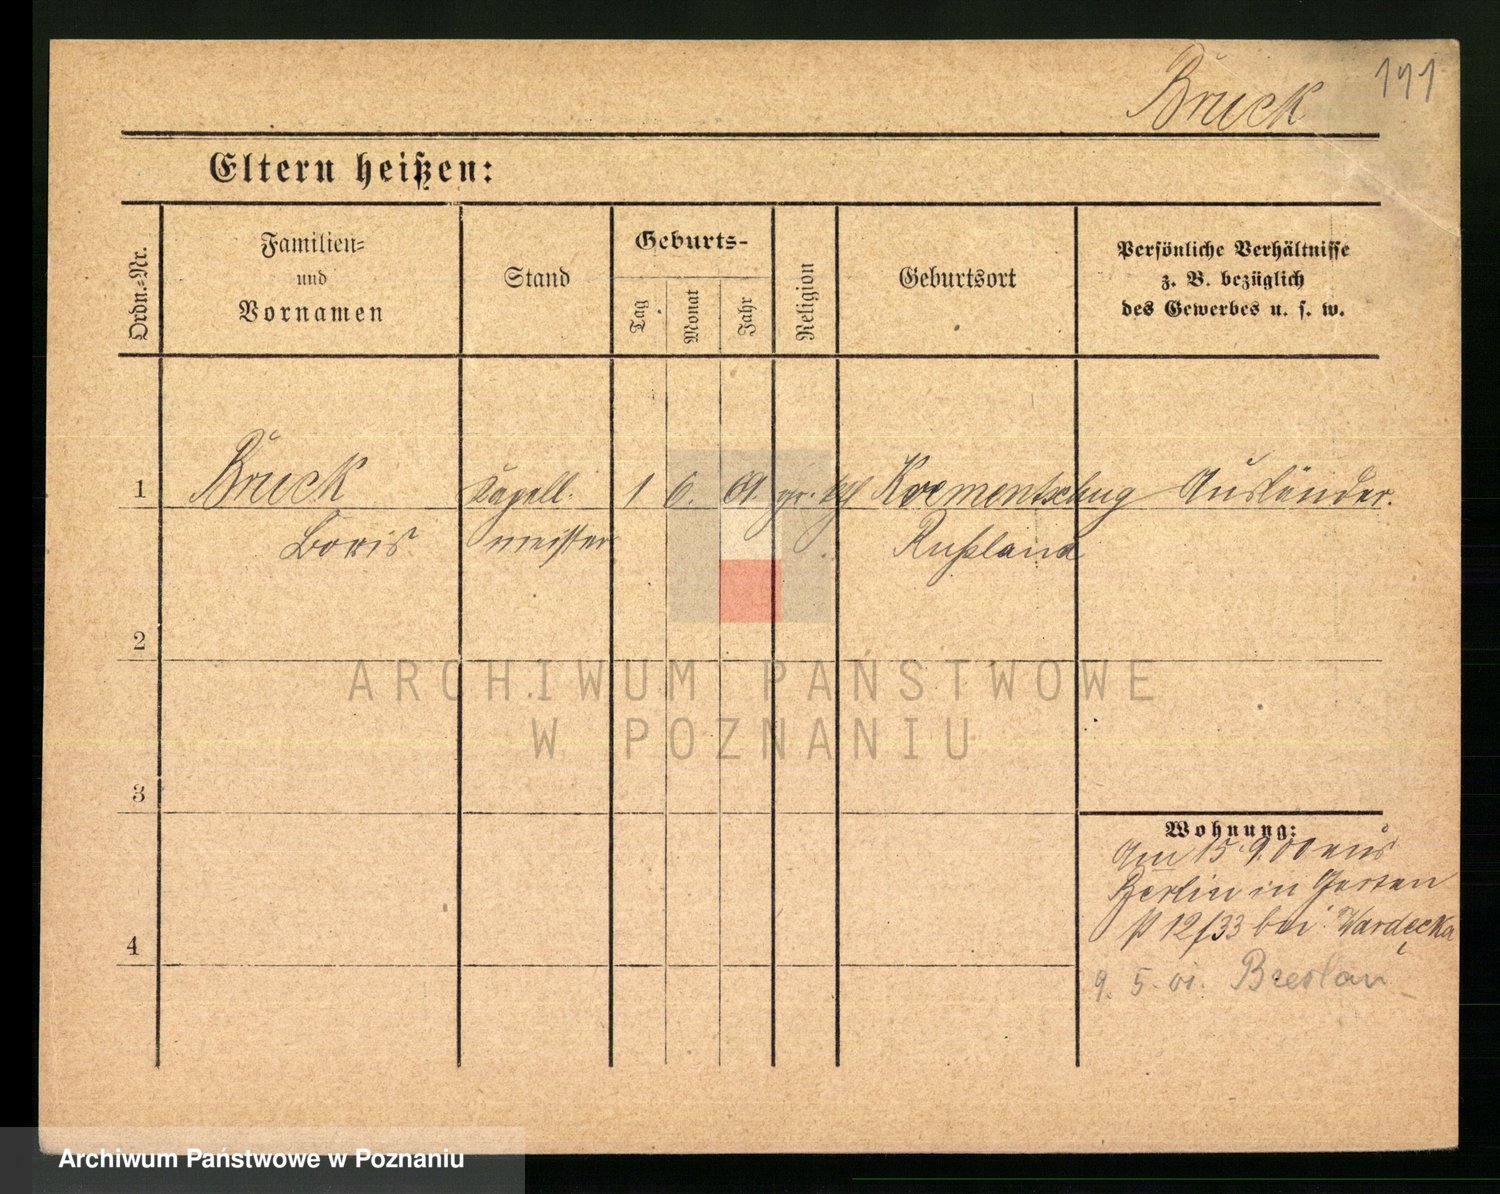 Bruck
191
Eltern heißen:
Ordn.-Nr.
Familien-
und
Vornamen
Stand
Geburts-
Tag
Monat
Jahr
Religion
Geburtsort
Persönliche Verhältnisse
z. B. bezüglich
des Gewerbes u. s. w.
1
Bruck
Kapell-
1
6.
61.
gr. kth
Krementschug
Ausländer.
Boris
meister
Rußland
2
ARCHIWUM PAŃSTWOWE
W POZNANIU
3
Wohnung:
Am 15.9.00 aus
Berlin in
12/33 bei Wardęcka
4
9. 5. 01. Breslau
Archiwum Państwowe w Poznaniu